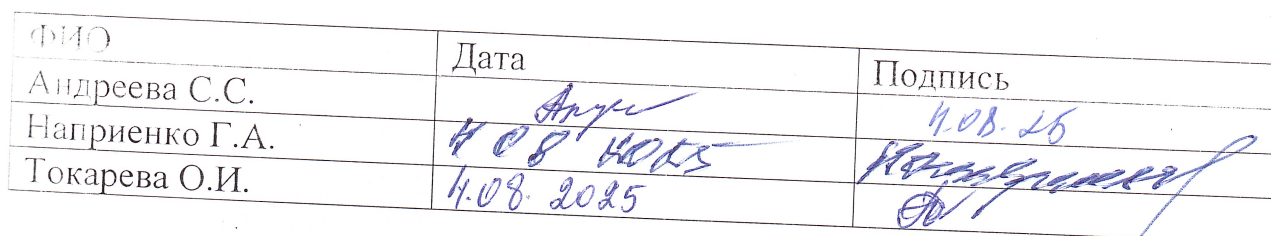 ФИО Дата Подпись
Андреева С.С. 4.08.25
Наприенко Г.А. 4 08 2025
Токарева О.И. 4.08. 2025